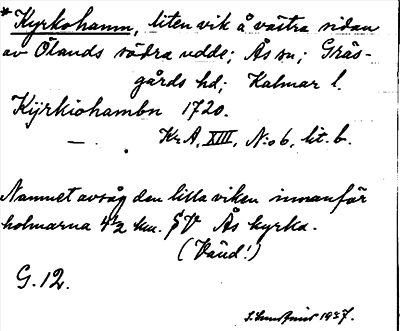 *Kyrkohamn, liten vik å västra sidan
av Ölands södra udde; Ås sn; Gräs-
gårds hd; Kalmar l.
Kÿrkiohambn 1720.
— . KrA, XIII, N:o 6, lit. b.
Namnet avsåg den lilla viken innanför
holmarna 4½ km. SV Ås kyrka.
(Vänd!)
G. 12.
1937.